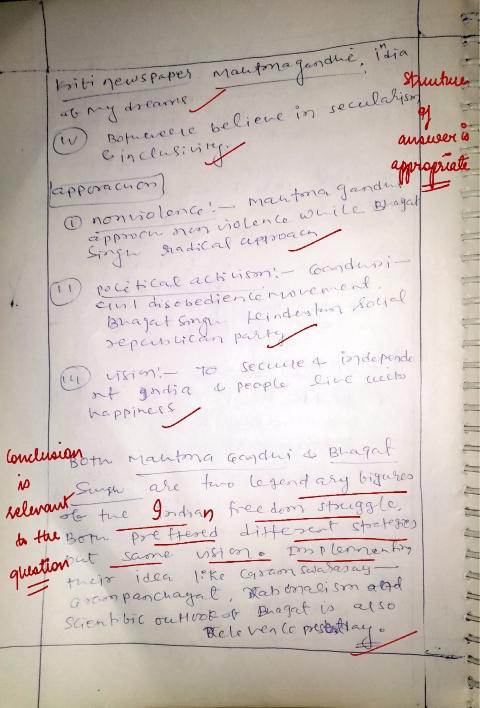 kriti newspaper Mahtma gandhi, in India
of my dreams
(IV) Both were believe in secularism
& inclusivity.
Structure
of
answer is
appropriate
apporachon
(I) nonviolence:- Mahtma gandhi
approch non violence while Bhagat
Singh radical approach
(II) political activism:- Gandhiji-
civil disobedience movement.
Bhagat Singh Hindustan social
republican party
(III) vision:- To secure & independe
nt India & people live with
happiness
Conclusion
is
relevant
to the
question
Both Mahtma Gandhi & Bhagat
Singh are two legendary figures
of the Indian freedom struggle.
Both preffered different strategies
but same vision. Implementing
their idea like Gram swaraj-
Grampanchayat, Rationalism and
Scientific outlook of Bhagat is also
Relevence present day.